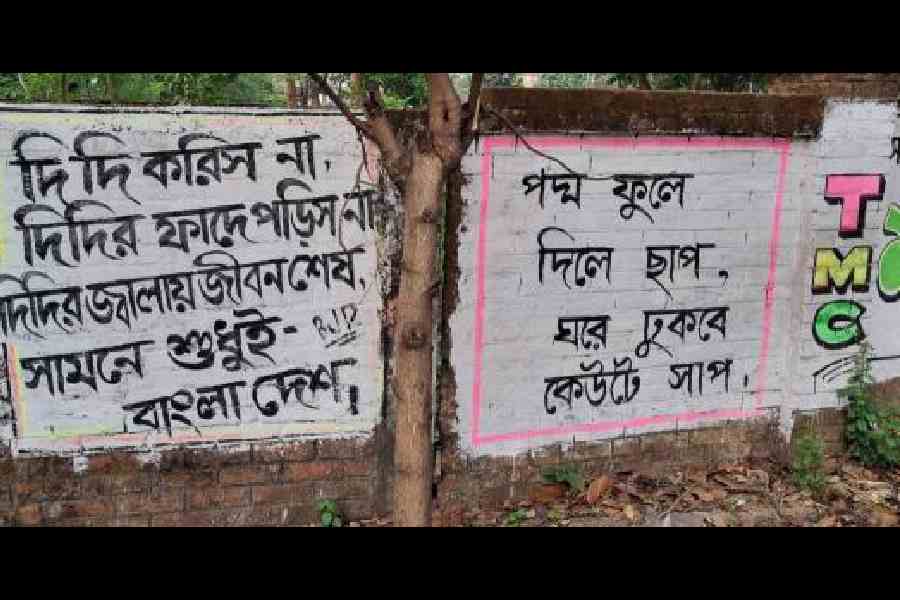 দি দি করিস না,
দিদির ফাদে পড়িস না
দিদির জ্বালায় জীবন শেষ,
সামনে শুধুই-
বাংলা দেশ।
BJP
পদ্ম ফুলে
দিলে ছাপ,
ঘরে ঢুকবে
কেউটে সাপ.
T
M
C